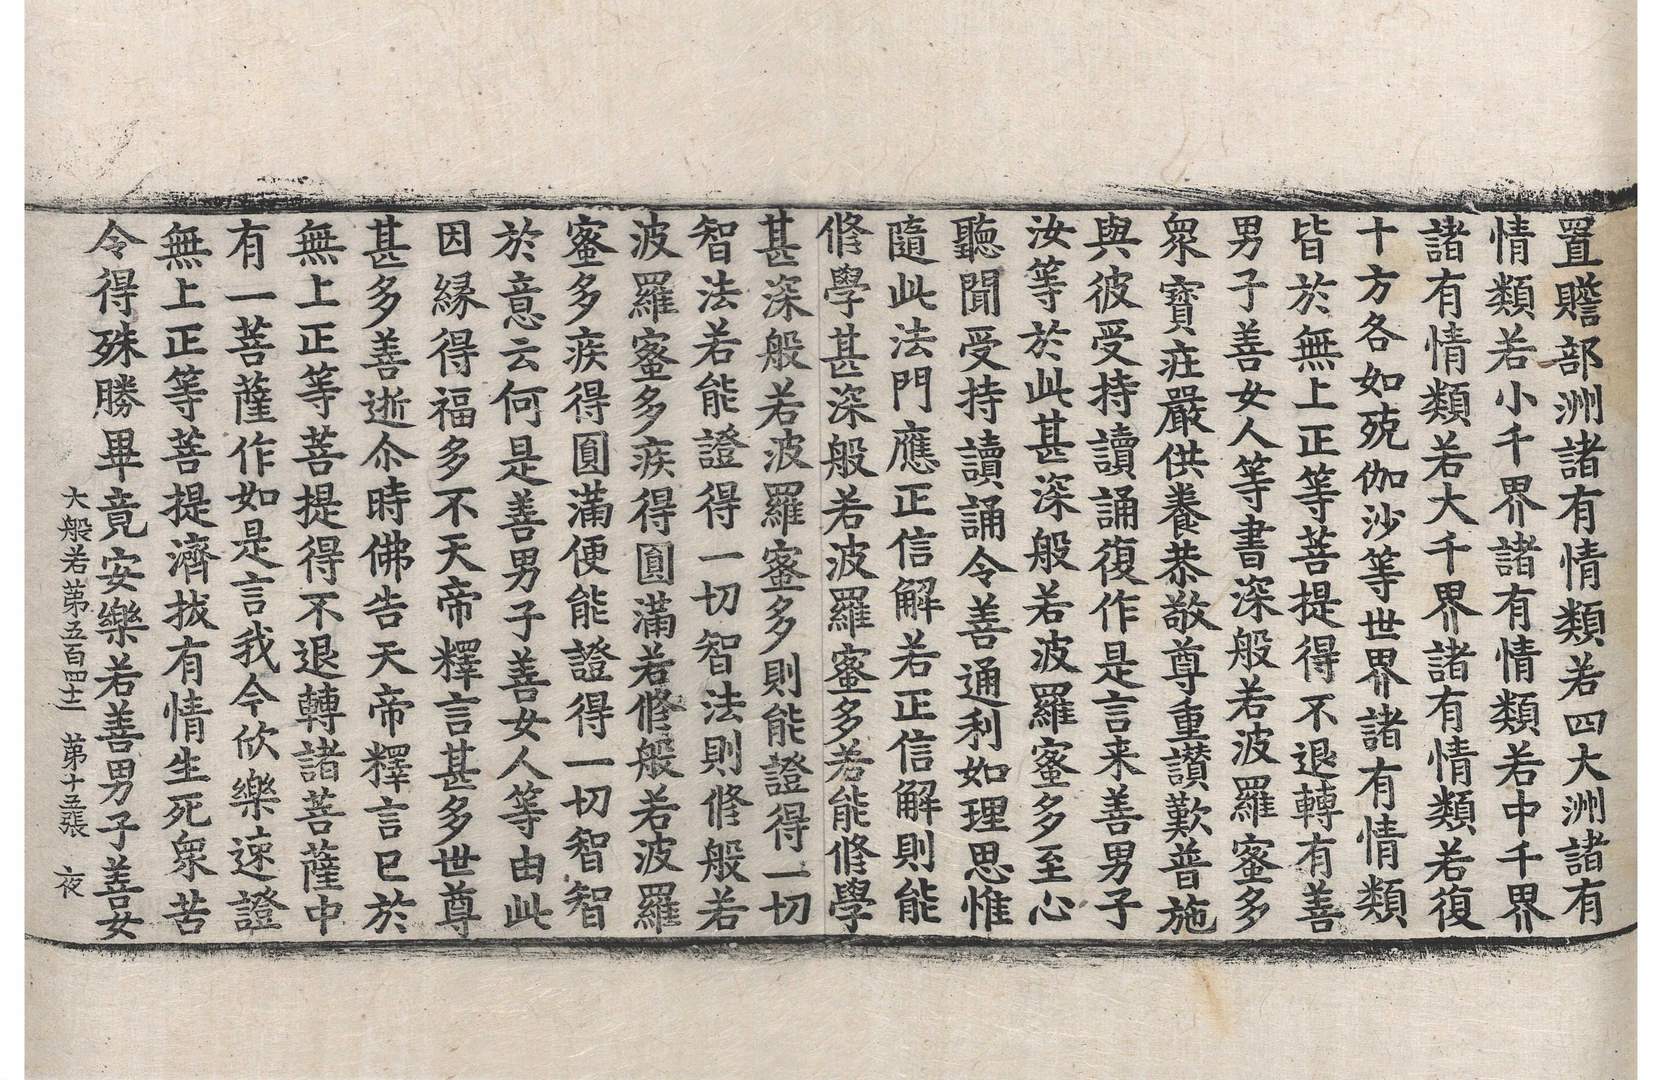 置贍部洲諸有情類若四大洲諸有
情類若小千界諸有情類若中千界
諸有情類若大千界諸有情類若復
十方各如殑伽沙等世界諸有情類
皆於無上正等菩提得不退轉有善
男子善女人等書深般若波羅蜜多
衆寶莊嚴供養恭敬尊重讃歎普施
與彼受持讀誦復作是言来善男子
汝等於此甚深般若波羅蜜多至心
聽聞受持讀誦令善通利如理思惟
隨此法門應正信解若正信解則能
修學甚深般若波羅蜜多若能修學
甚深般若波羅蜜多則能證得一切
智法若能證得一切智法則修般若
波羅蜜多疾得圓滿若修般若波羅
蜜多疾得圓滿便能證得一切智智
於意云何是善男子善女人等由此
因縁得福多不天帝釋言甚多世尊
甚多善逝尒時佛告天帝釋言已於
無上正等菩提得不退轉諸菩薩中
有一菩薩作如是言我今欣樂速證
無上正等菩提濟拔有情生死衆苦
令得殊勝畢竟安樂若善男子善女
大般若第五百四十二 第十五張 夜